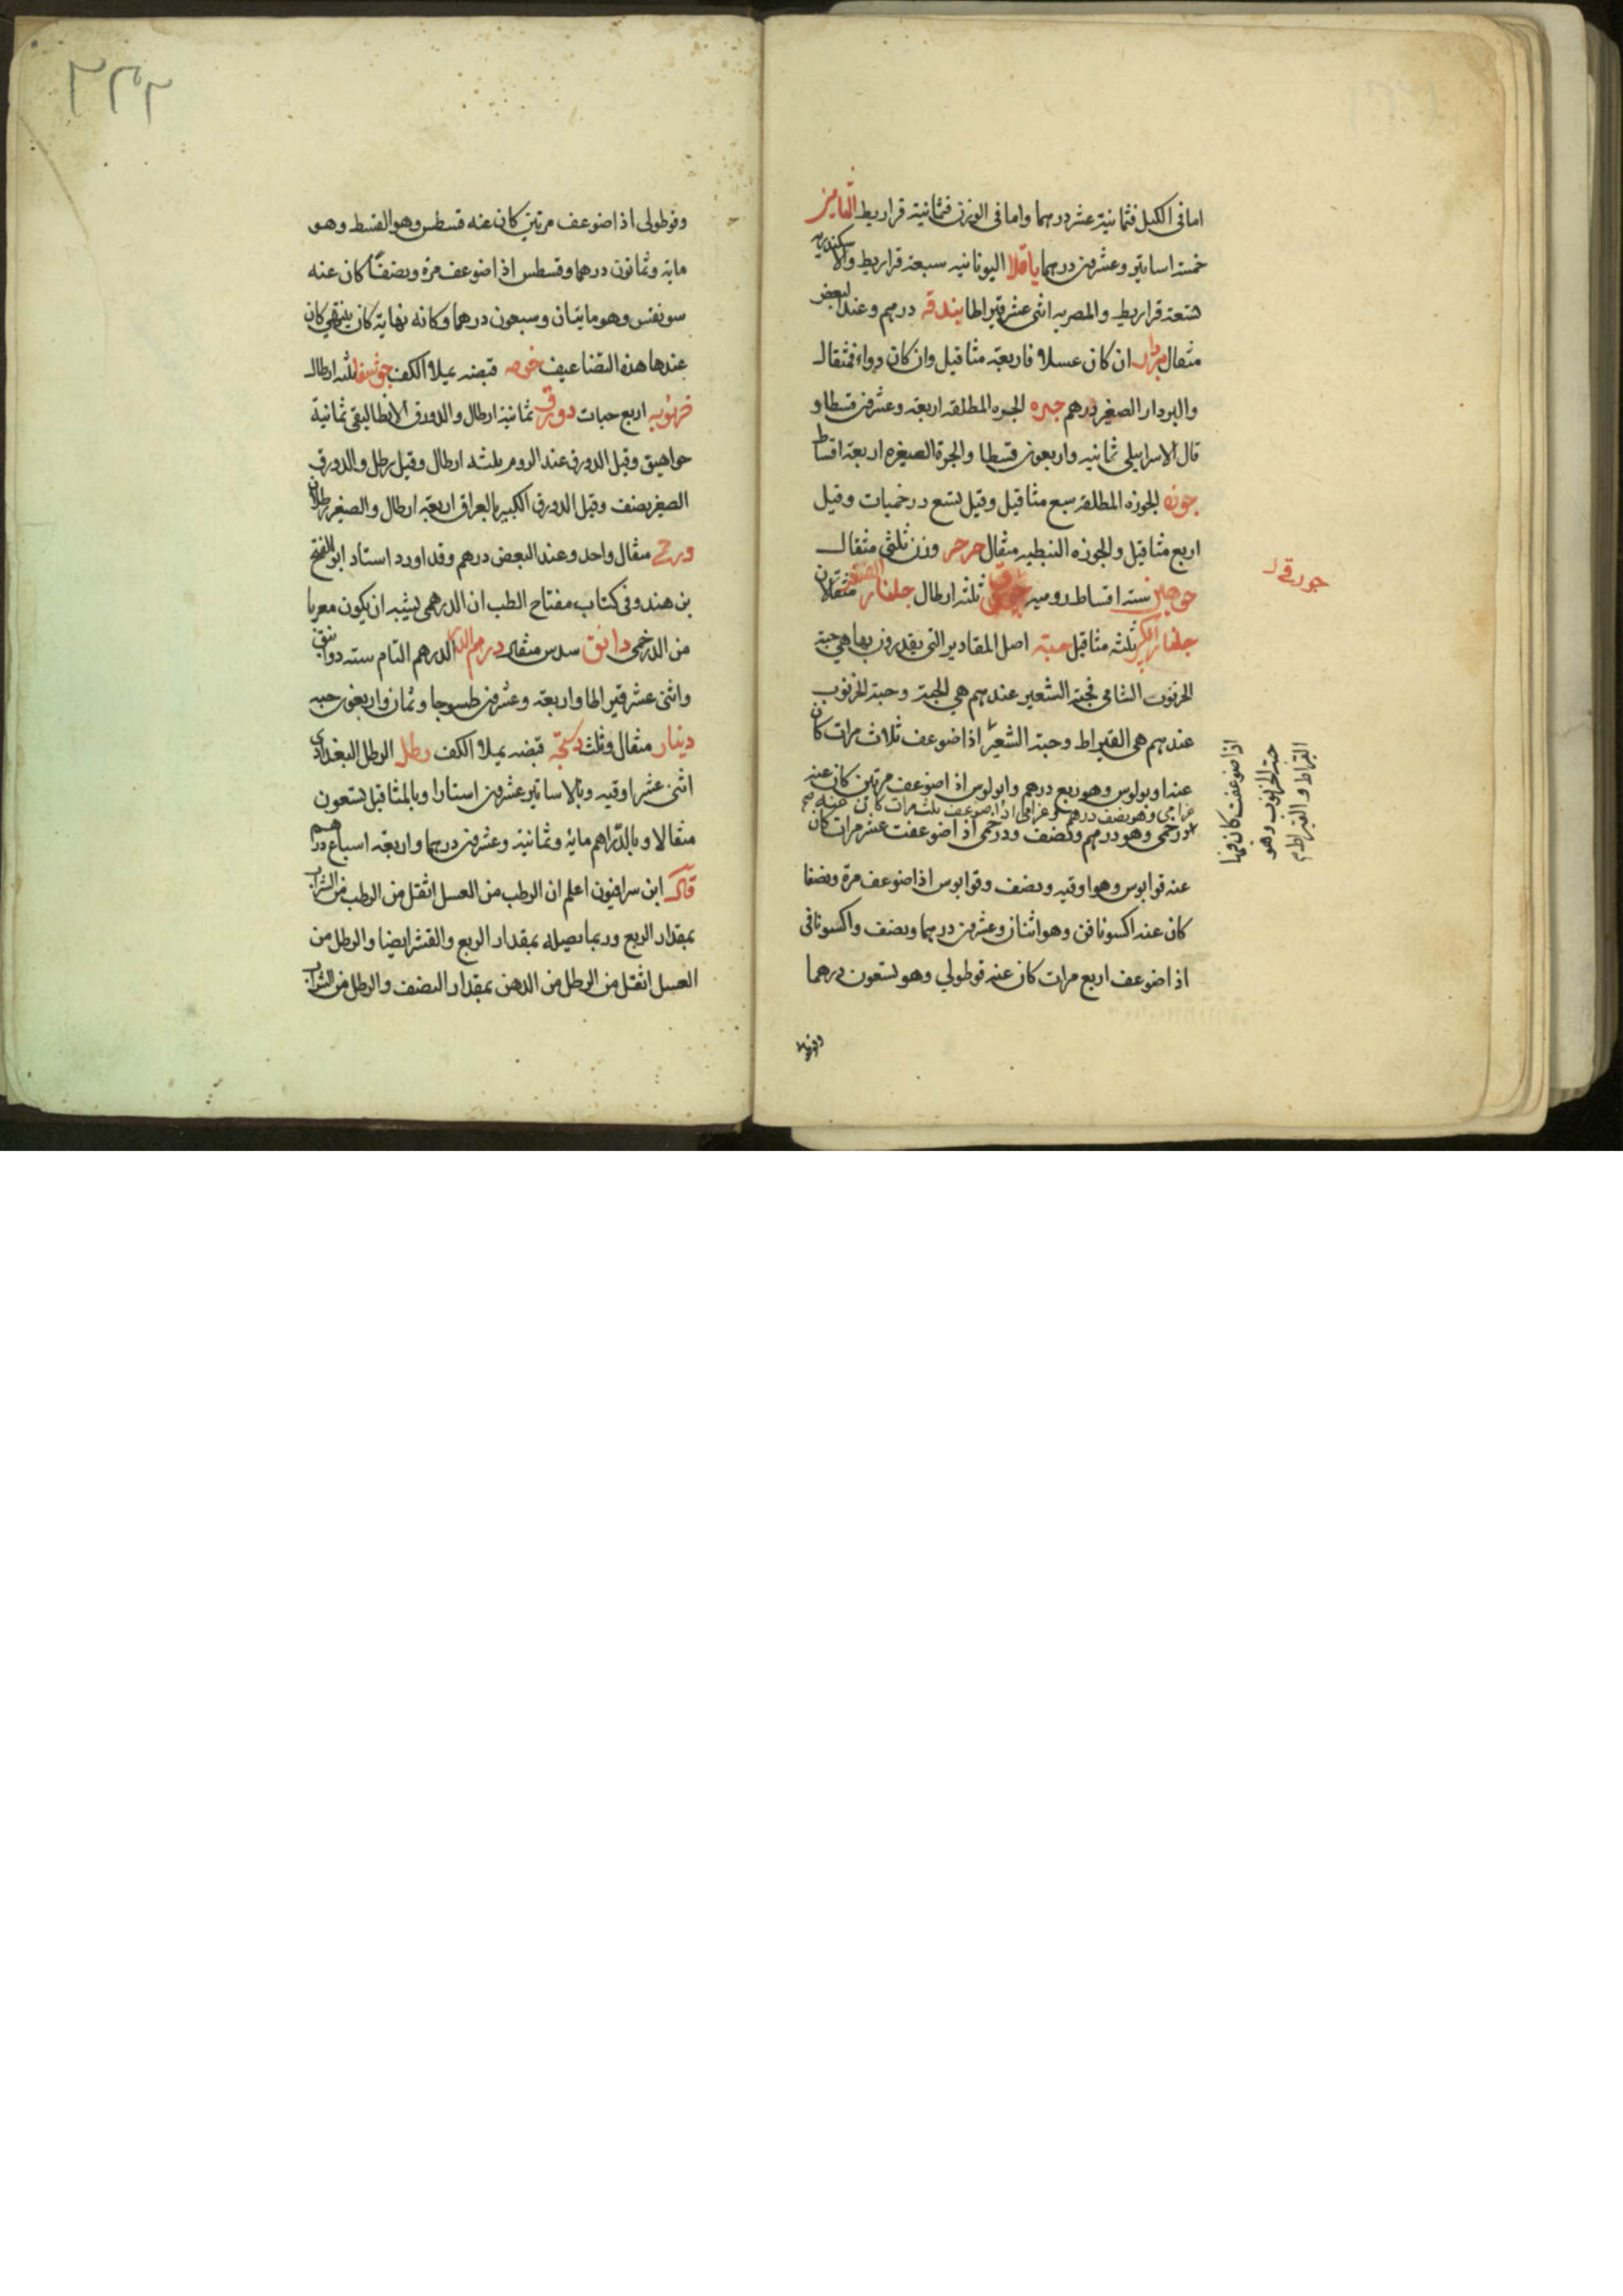 اما فى الكيل فثمانية عشر درهما واما فى الوزن فثمانية قراريط الثامن
خمسة اساتير وعشرين درهما باقلا اليونانيه سبعة قراريط والاسكندريه
تسعة قراريط والمصريه اثنى عشر قيراطا بندقه درهم وعند البعض
مثقال بردار ان كان عسلا فاربعة مثاقيل وان كان دواء فمثقال
والبردار الصغير درهم جره الجره المطلقه اربعة وعشرين قسطا و
قال الاسرايلى ثمانيه واربعون قسطا والجرة الصغيره اربعة اقساط
جوزه الجوزه المطلقه سبع مثاقيل وقيل تسع درخميات وقيل
اربع مثاقيل والجوزه النبطيه مثقال جرجر وزن ثلثى مثقال
جورقى
ستة اقساط روميه ثلثه ارطال جلنار الصغير مثقالان
جلنار الكبير ثلثه مثاقيل حبة اصل المقادير التى يقدرون بها هى حبة
الخرنوب الشامى فحبة الشعير عندهم هى الحبة وحبة الخرنوب
عندهم هى القيراط وحبة الشعير اذا ضوعف ثلاث مرات كان
عنه اوبولوس وهو ربع درهم وابولوس اذ اضوعف مرتين كان عنه
غرامى وهو نصف درهم وغرامى اذا ضوعف ثلث مرات كان عنه صح
درخمى وهو درهم ونصف ودرخمى اذ اضوعفت عشر مرات كان
عنه قوابوس وهو اوقيه ونصف وقوابوس اذا ضوعف مرة ونصفا
كان عنه اكسونافن وهو اثنان وعشرين درهما ونصف واكسونافى
اذ اضوعف اربع مرات كان عنه قوطولي وهو تسعون درهما
اذا ضوعف كان منها
حبة الخرنوب وهو
القيراط والقيراط
وقوطولى اذ اضوعف مرتين كان عنه قسطس وهو القسط وهو
مايه وثمانون درهما وقسطس اذ اضوعف مرة ونصفا كان عنه
سونفس وهو مايتان وسبعون درهما وكانه نهاية كان ينتهي كان
عندها هذه التضاعيف خوصه قبضه بملا الكف جوشفا ثلثه ارطال
خرنوبه اربع حبات دورق ثمانية ارطال والدورق الانطاليقى ثمانية
جواهيق وقيل الدورق عند الروم ثلثه ارطال وقيل رطل والدورق
الصغير نصف وقيل الدورق الكبير بالعراق اربعة ارطال والصغير رطلان
درخمى مثقال واحد وعند البعض درهم وقد اورد استاد ابو الفتح
بن هندو فى كتاب مفتاح الطب ان الدرهمى يشبه ان يكون معربا
من الدرخمى دانق سدس مثقال درهم الدرهم التام سته دوانق
واثنى عشر قيراطا واربعة وعشرين طسوجا وثمان واربعون حبه
دينار مثقال وثلث دستجة قبضه بملا الكف رطل الرطل البغدادى
اثنى عشر اوقيه وبالاساتير عشرين استارا وبالمثاقيل تسعون
مثقالا وبالدراهم مائه وثمانية وعشرين درهما واربعة اسباع درهم
قال ابن سرافيون اعلم ان الرطب من العسل اثقل من الرطب من الشراب
بمقدار الربع وربما يصيله بمقدار الربع والقشر ايضا والرطل من
العسل اثقل من الرطل من الدهن بمقدار النصف والرطل من الشراب